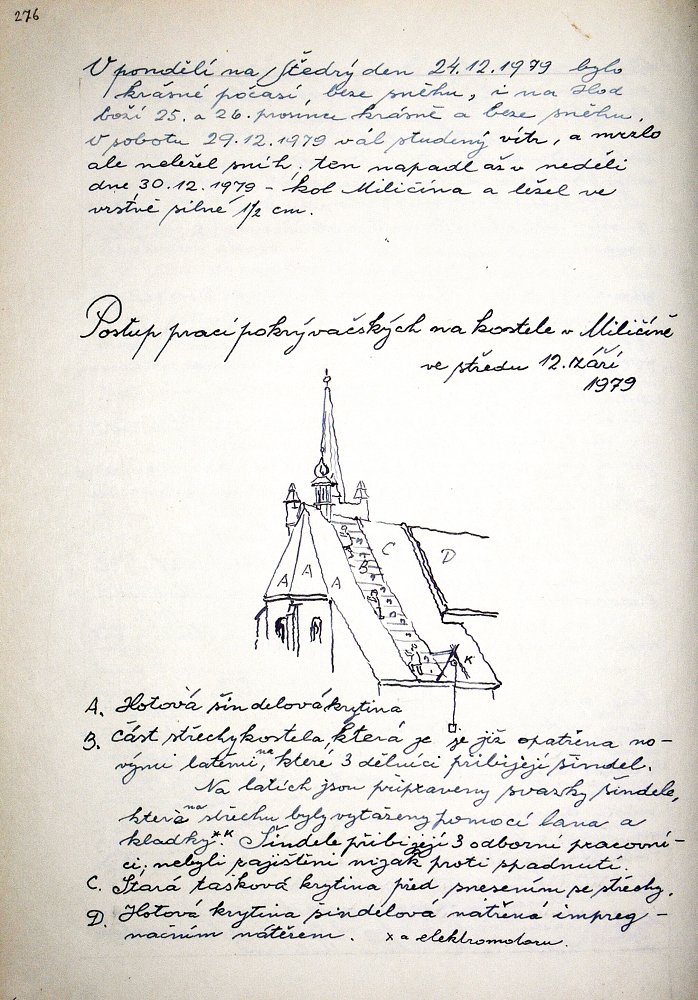 276
V pondělí na Štědrý den 24.12.1979 bylo
krásné počasí, beze sněhu, i na Hod
boží 25. a 26. prosince krásně a beze sněhu.
V sobotu 29.12.1979 vál studený vítr, a mrzlo
ale neležel sníh. ten napadl až v neděli
dne 30.12.1979 - kol Miličína a ležel ve
vrstvě silné 1/2 cm.
Postup prací pokrývačských na kostele v Miličíně
ve středu 12. září
1979
B C D
A A A B
K
A. Hotová šindelová krytina
B. část střechy kostela, která je je již opatřena no-
vými latěmi, na které 3 dělníci přibíjejí šindel.
Na latích jsou připraveny svazky šindele,
která na střechu byly vytaženy pomocí lana a
kladky.*K Šindele přibíjejí 3 odborní pracovní-
ci, nebyli zajištěni nijak proti spadnutí.
C. Stará tašková krytina před snesením se střechy.
D. Hotová krytina šindelová natřená impreg-
načním nátěrem. x a elektromotoru.